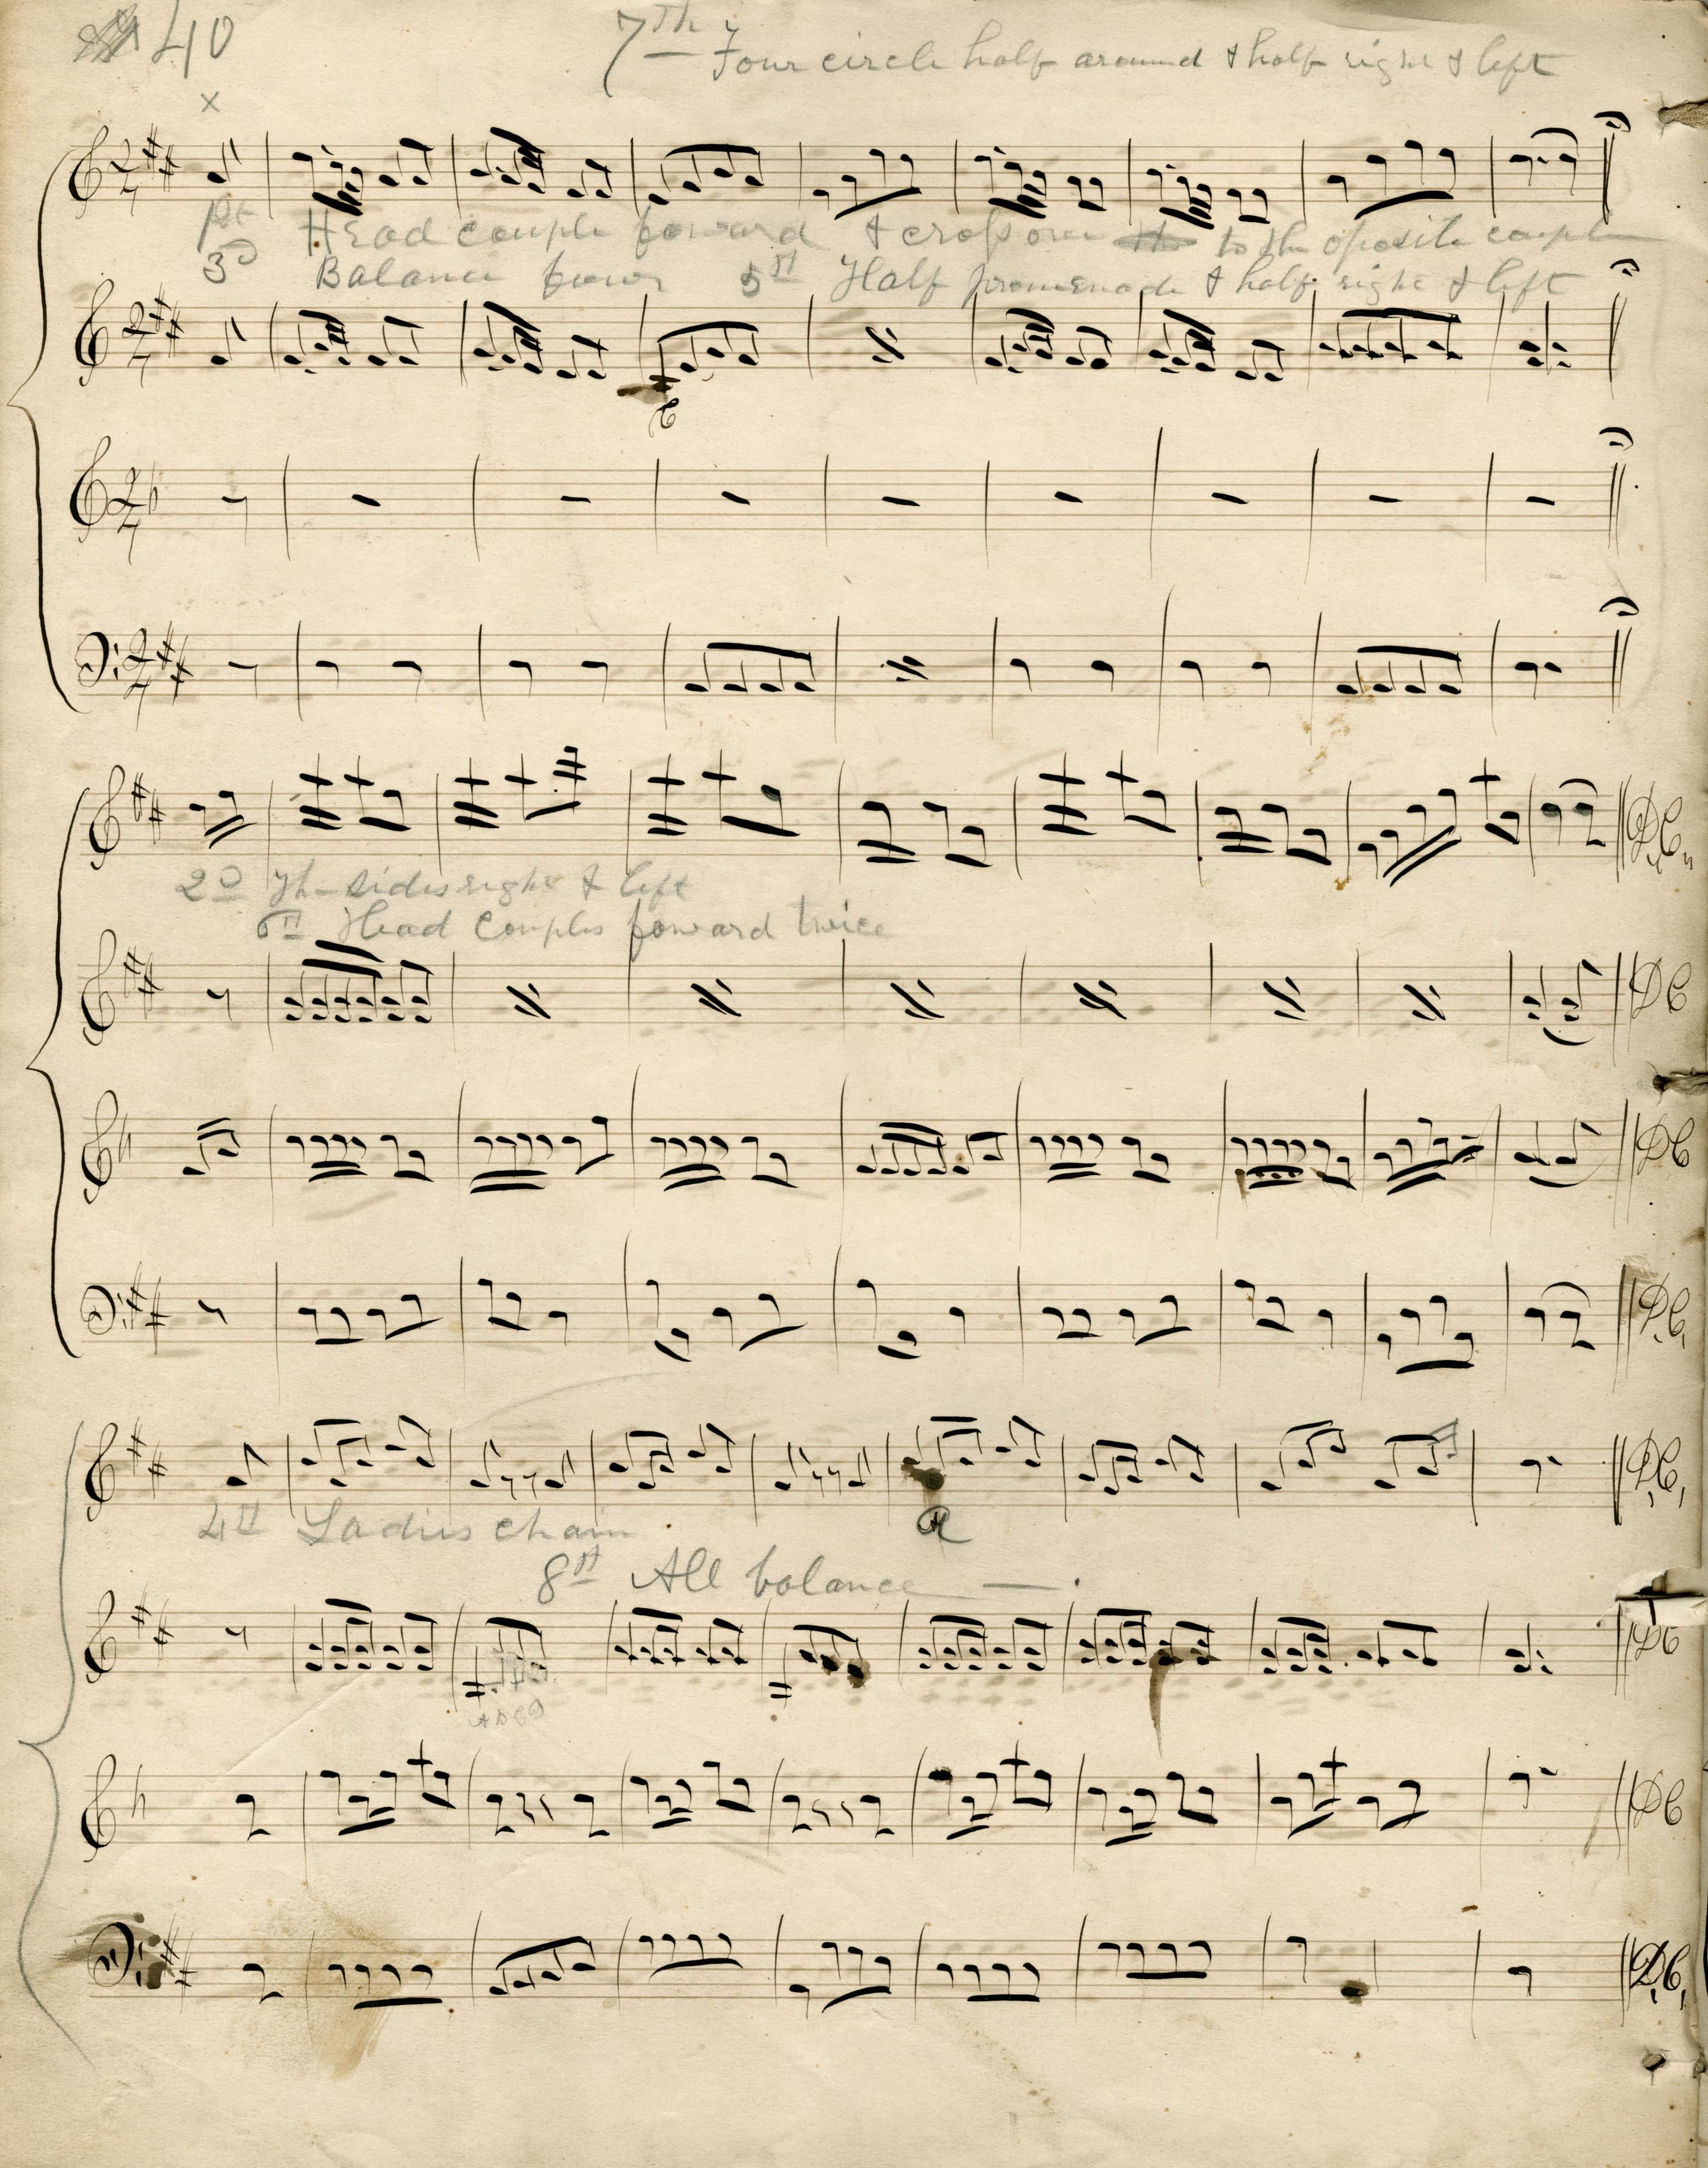 40
7th Four circle half around & half right & left
x
Head couple forward & cross over to the oposite couple
3d Balance four 5th Half promenade & half right & left
D.C.
2d The sides right & left
6th Head Couples forward twice
DC
DC
D.C.
D.C.
4th Ladies chain
8th All balance
DC
DC
D.C.